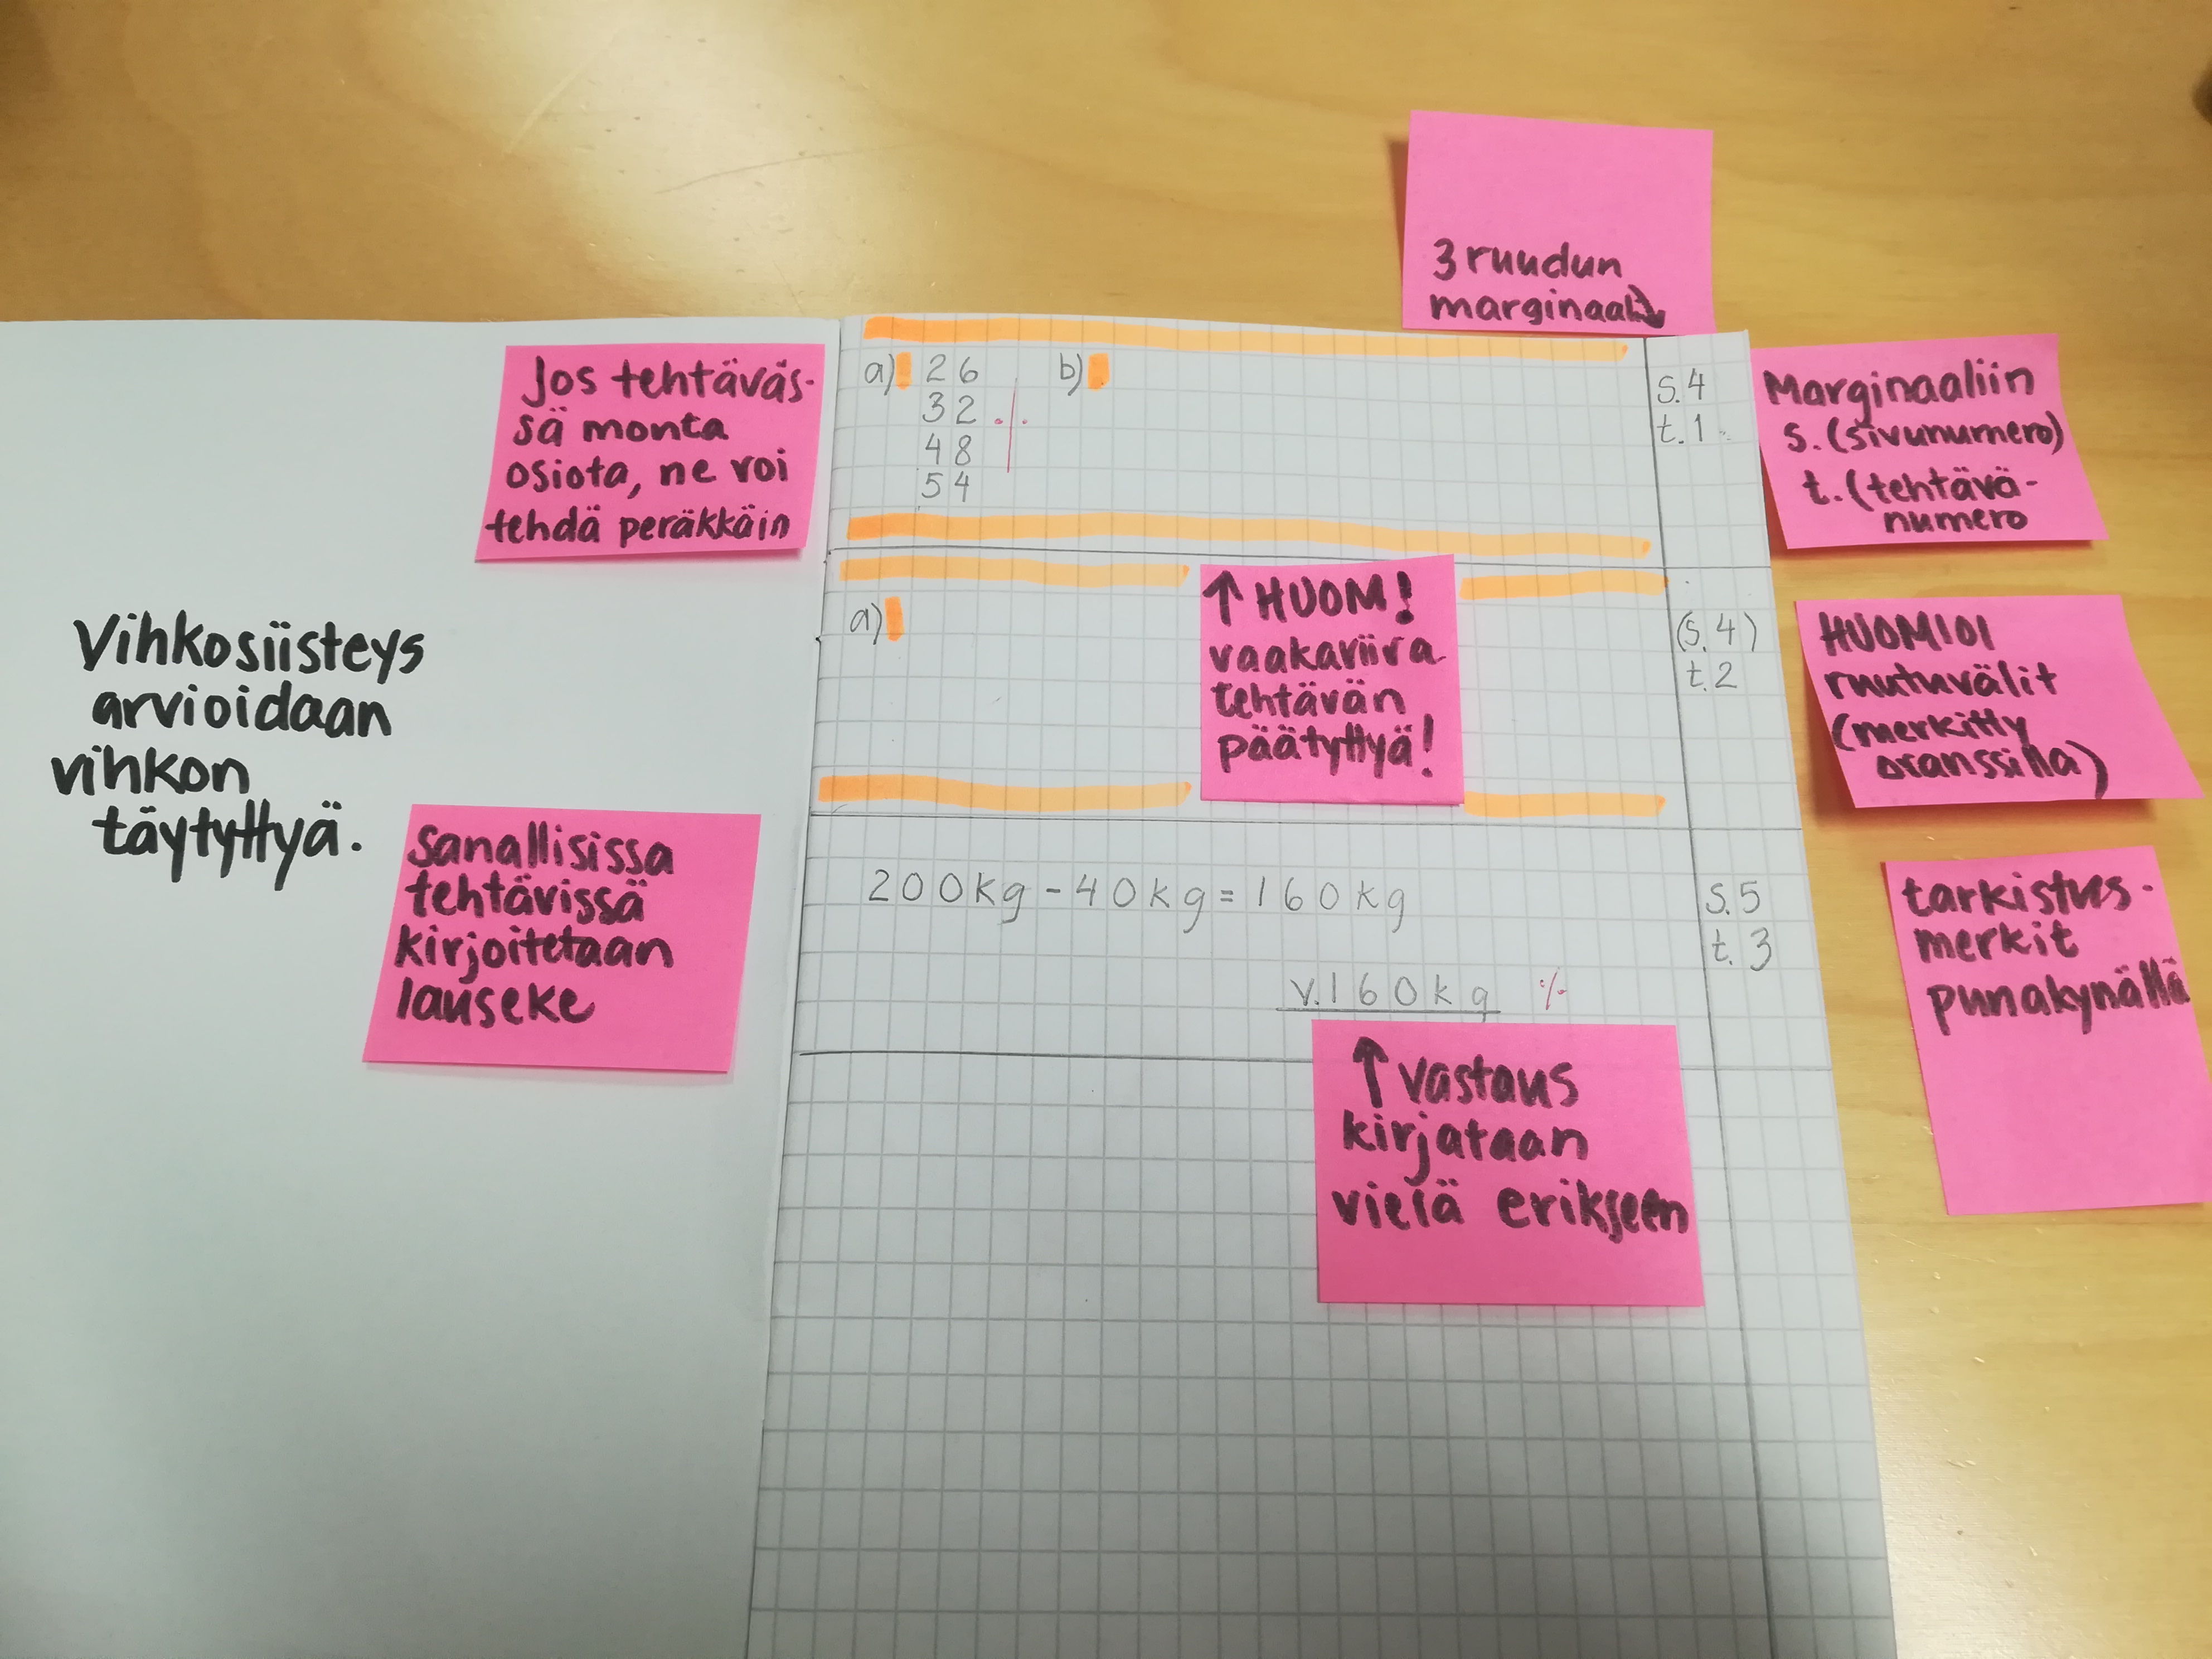 3 ruudun
marginaali
Jos tehtäväs-
sä monta
osiota, ne voi
tehdä peräkkäin
a) 26
32 ./.
48
54
b)
s.4
t.1
Marginaaliin
s. (sivunumero)
t. (tehtävä-
numero
Vihkosiisteys
arvioidaan
vihkon
täytyttyä.
a)
↑ HUOM!
vaakaviiva
tehtävän
päätyttyä!
(s.4)
t.2
HUOMIOI
ruutuvälit
(merkitty
oranssilla)
Sanallisissa
tehtävissä
kirjoitetaan
lauseke
200kg-40kg=160kg
v.160kg ./.
s.5
t.3
tarkistus-
merkit
punakynällä
↑ vastaus
kirjataan
vielä erikseen